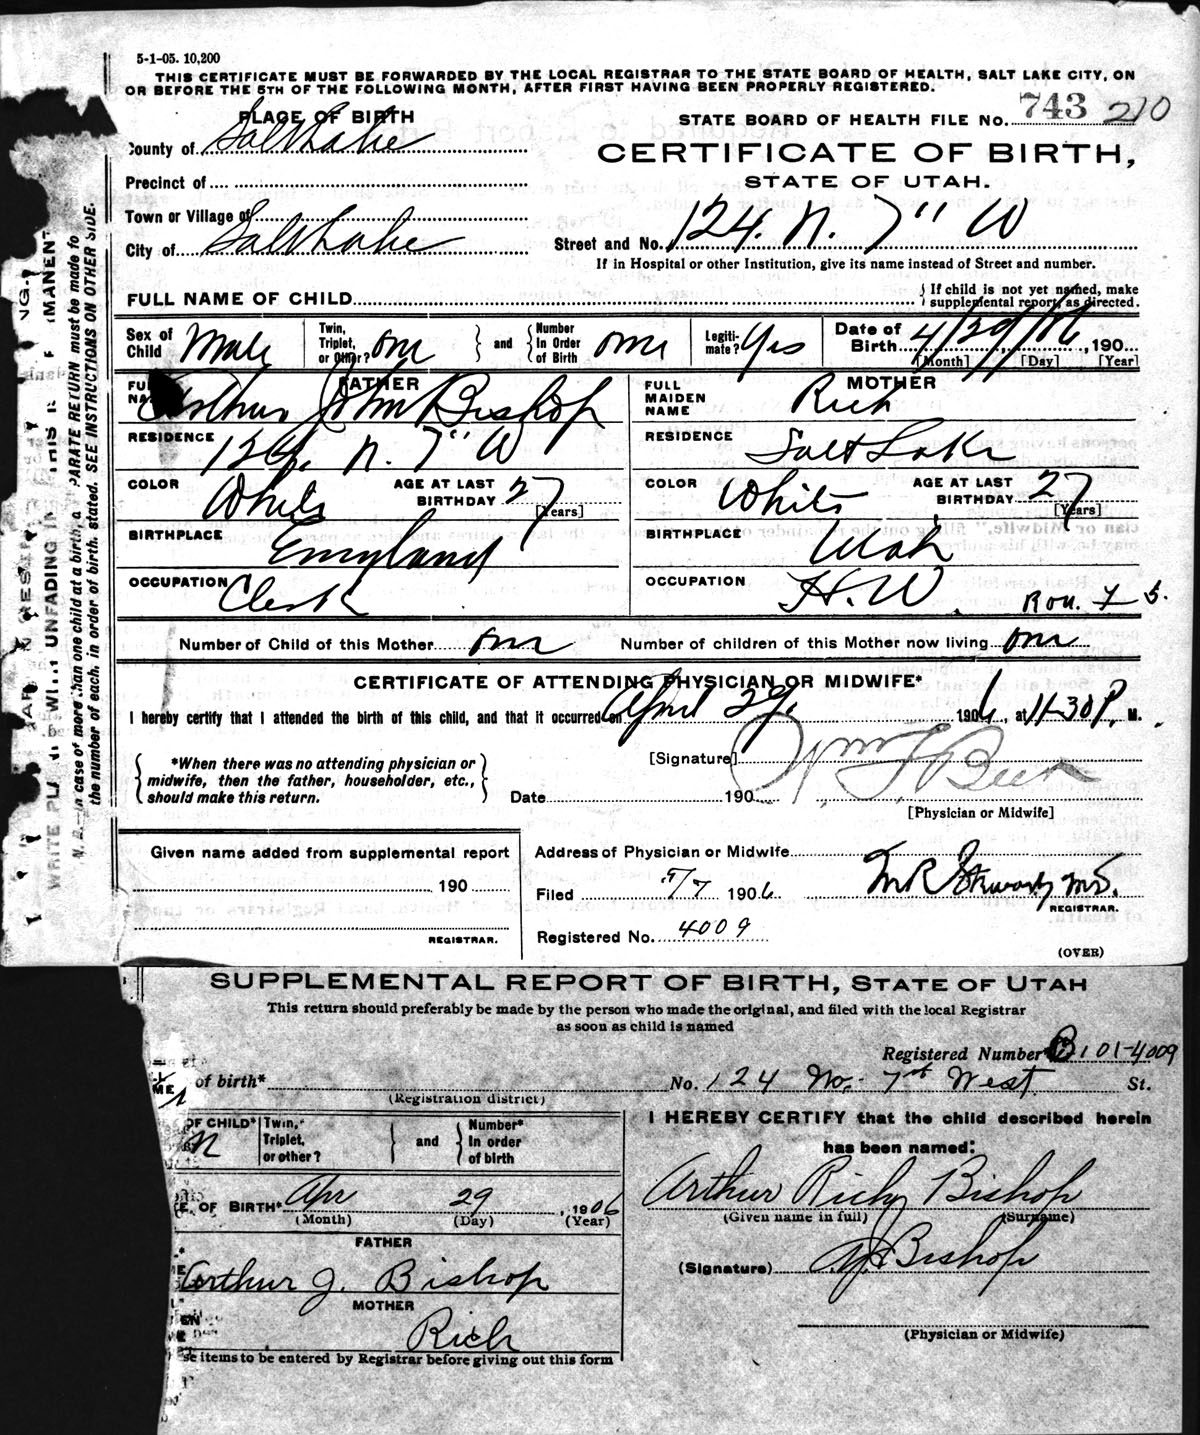 5-1-05. 10,200
THIS CERTIFICATE MUST BE FORWARDED BY THE LOCAL REGISTRAR TO THE STATE BOARD OF HEALTH, SALT LAKE CITY, ON
OR BEFORE THE 5TH OF THE FOLLOWING MONTH, AFTER FIRST HAVING BEEN PROPERLY REGISTERED.
PLACE OF BIRTH
STATE BOARD OF HEALTH FILE No. 743 210
County of Salt Lake
CERTIFICATE OF BIRTH,
Precinct of
STATE OF UTAH.
Town or Village of
City of Salt Lake
Street and No. 124. N. 7" W
If in Hospital or other Institution, give its name instead of Street and number.
FULL NAME OF CHILD
{ If child is not yet named, make
supplemental report, as directed.
Sex of Child Male
Twin, Triplet, or Other? one } and { Number In Order of Birth one
Legiti-mate? Yes
Date of Birth 4/29/06, 190
[Month] [Day] [Year]
FATHER
FULL NAME Arthur John Bishop
RESIDENCE 124. N. 7" W
COLOR White AGE AT LAST BIRTHDAY 27 [Years]
BIRTHPLACE England
OCCUPATION Clerk
MOTHER
FULL MAIDEN NAME Rich
RESIDENCE Salt Lake
COLOR White AGE AT LAST BIRTHDAY 27 [Years]
BIRTHPLACE Utah
OCCUPATION H. W.
Number of Child of this Mother one Number of children of this Mother now living one
CERTIFICATE OF ATTENDING PHYSICIAN OR MIDWIFE*
I hereby certify that I attended the birth of this child, and that it occurred on April 29. 1906, at 11-30 P. M.
{ *When there was no attending physician or
midwife, then the father, householder, etc.,
should make this return. }
[Signature] Wm F Beer
Date 190
[Physician or Midwife]
Given name added from supplemental report
190
REGISTRAR.
Address of Physician or Midwife
Filed 5/7 1906 M.D.
REGISTRAR.
Registered No. 4009
(OVER)
WITH UNFADING IN
N. B.—In case of more than one child at a birth, a SEPARATE RETURN must be made fo
the number of each, in order of birth, stated. SEE INSTRUCTIONS ON OTHER SIDE.
SUPPLEMENTAL REPORT OF BIRTH, STATE OF UTAH
This return should preferably be made by the person who made the original, and filed with the local Registrar
as soon as child is named
Registered Number B101-4009
of birth* No. 124 No. 7th West St.
(Registration district)
OF CHILD*
Twin, Triplet, or other? } and { Number* In order of birth
E. OF BIRTH* Apr 29, 1906
(Month) (Day) (Year)
FATHER
Arthur J. Bishop
MOTHER
Rich
se items to be entered by Registrar before giving out this form
I HEREBY CERTIFY that the child described herein
has been named:
Arthur Rich Bishop
(Given name in full) (Surname)
(Signature) A J Bishop
(Physician or Midwife)